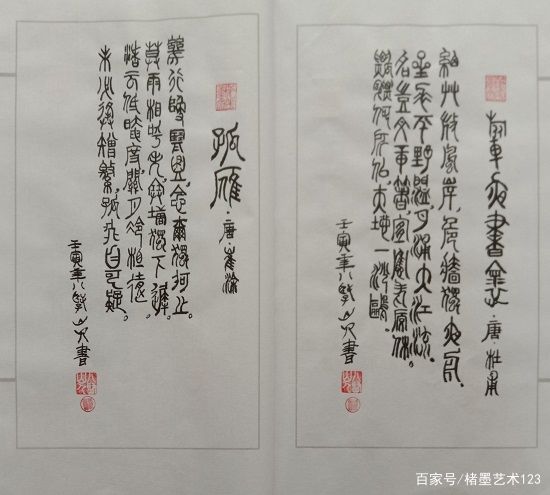 旅夜書懷·唐·杜甫
細草微風岸,危檣獨夜舟。
星垂平野闊,月涌大江流。
名豈文章著,官應老病休。
飄飄何所似,天地一沙鷗。
壬寅年八山人書
孤雁·唐·崔塗
幾行歸塞盡,念爾獨何之。
暮雨相呼失,寒塘獨下遲。
渚雲低暗度,關月冷相隨。
未必逢矰繳,孤飛自可疑。
壬寅年八山人書
百家号/楮墨艺术123